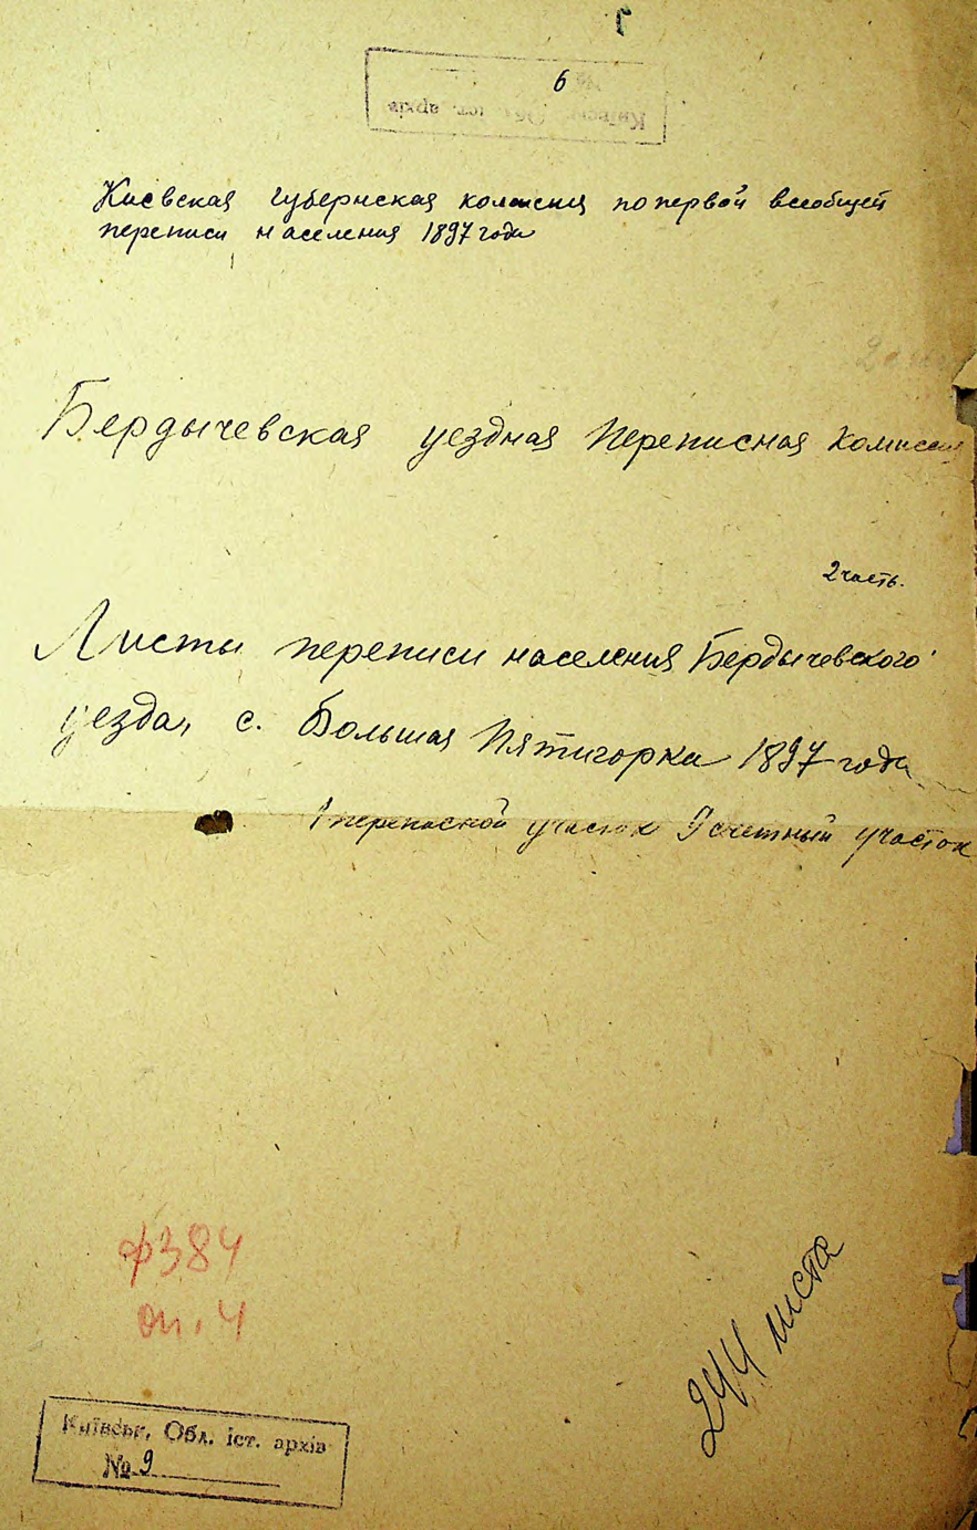 6
Київськ. Обл. іст. архів
Киевская губернская комисия по первой всеобщей
переписи населения 1897 года
Бердычевская уездная переписная комиссия
2 часть.
Листы переписи населения Бердычевского
уезда, с. Большая Пятигорка 1897 года
1 переписной участок 9 счетный участок
ф384
оп. 4
244 листа
Київськ. Обл. іст. архів
№ 9